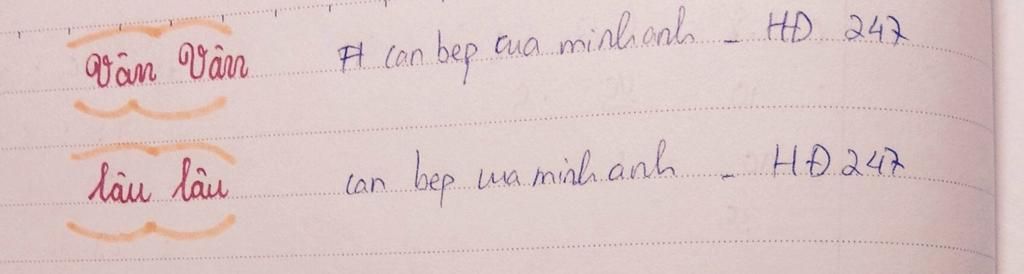 Vân Vân # can bep cua minh anh - HĐ 247
lâu lâu can bep cua minh anh - HĐ 247